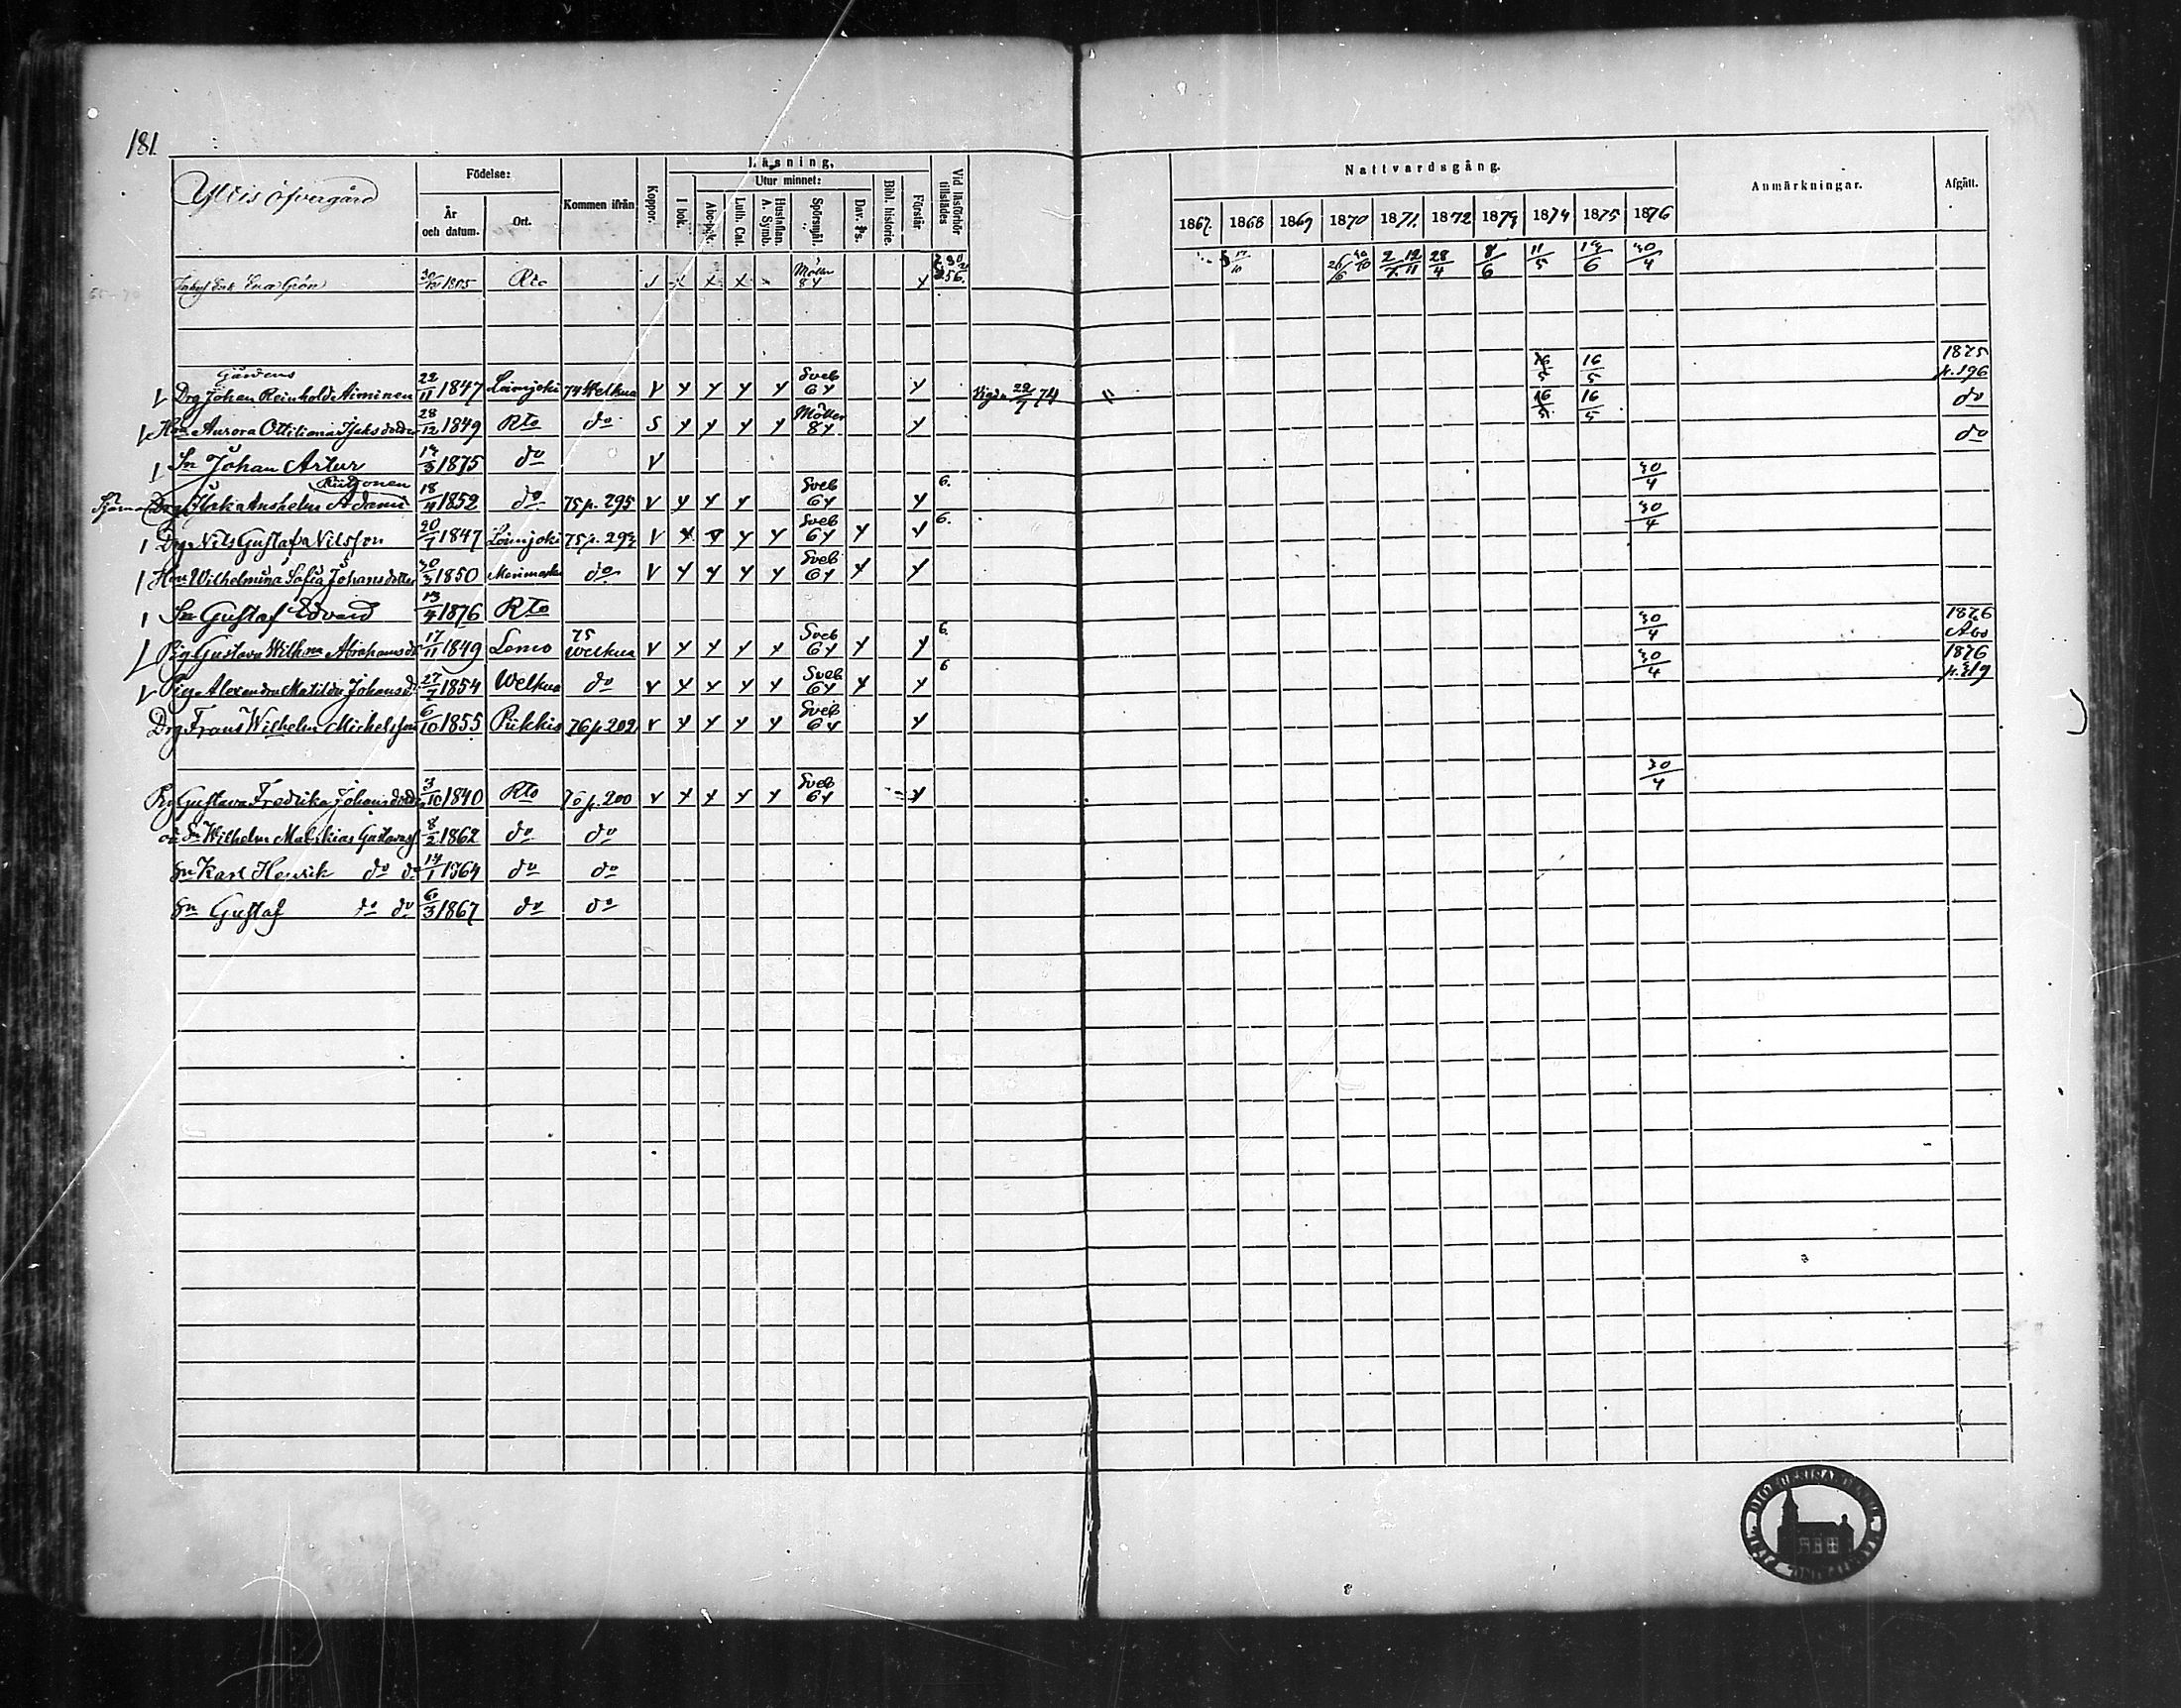 181.
Yllis öfvergård
Födelse:
År och datum.
Ort.
Kommen ifrån
Koppor.
Läsning,
I bok.
Utur minnet:
Abc-bok.
Luth. Cat.
Husflan. A. Symb.
Spörsmål.
Dav. Ps.
Bibl. historie.
Förstår
Vid läsförhör tillstädes
Nattvardsgång.
1867. 1868 1869 1870 1871. 1872 1873 1874 1875 1876
Anmärkningar.
Afgått.
Enk Eva Grön 1805 Rto S x x x Möller 84 x 17/10 2/7 12/11 28/4 8/6 11/5 13/6 30/4
Gårdens
Drg Johan Reinhold Aiminen 22/11 1847 Loimjoki 74 Welkua V y y y y Sveb 64 y Vigde 22/7 74 16/5 16/5 1875 p. 196
Hu Aurora Ottiliana Isaksdotter 28/12 1849 Rto do S y y y y Möller 84 y 16/5 16/5 do
Sn Johan Artur 13/3 1875 do V do
Drg Isak Anshelm Adami 18/4 1852 do 75 p. 295 V y y y Sveb 64 y 6. 30/4
Drg Nils Gustaf Nilsson 20/7 1847 Loimjoki 75 p. 293 V y y y y Sveb 64 y y 6. 30/4
Hu Wilhelmina Sofia Johansdotter 30/3 1850 Merimasku do V y y y y Sveb 64 y y
Sn Gustaf Edvard 13/4 1876 Rto
Pig Gustava Wilhna Abrahamsd 17/11 1849 Lemo 75 Welkua V y y y y Sveb 64 y y 6. 30/4 1876 Åbo
Pig Alexandra Matilda Johansd 27/7 1854 Welkua do V y y y y Sveb 64 y y 6 30/4 1876 p. 319
Drg Frans Wilhelm Michelsson 6/10 1855 Piikkis 76 p 202 V y y y y Sveb 64 y
Pig Gustava Fredrika Johansdotter 3/10 1840 Rto 76 p. 200 V y y y y Sveb 64 y 30/4
oä Sn Wilhelm Mathias Gustavas 8/2 1862 do do
Sn Karl Henrik do do 14/1 1864 do do
Sn Gustaf do do 6/3 1867 do do